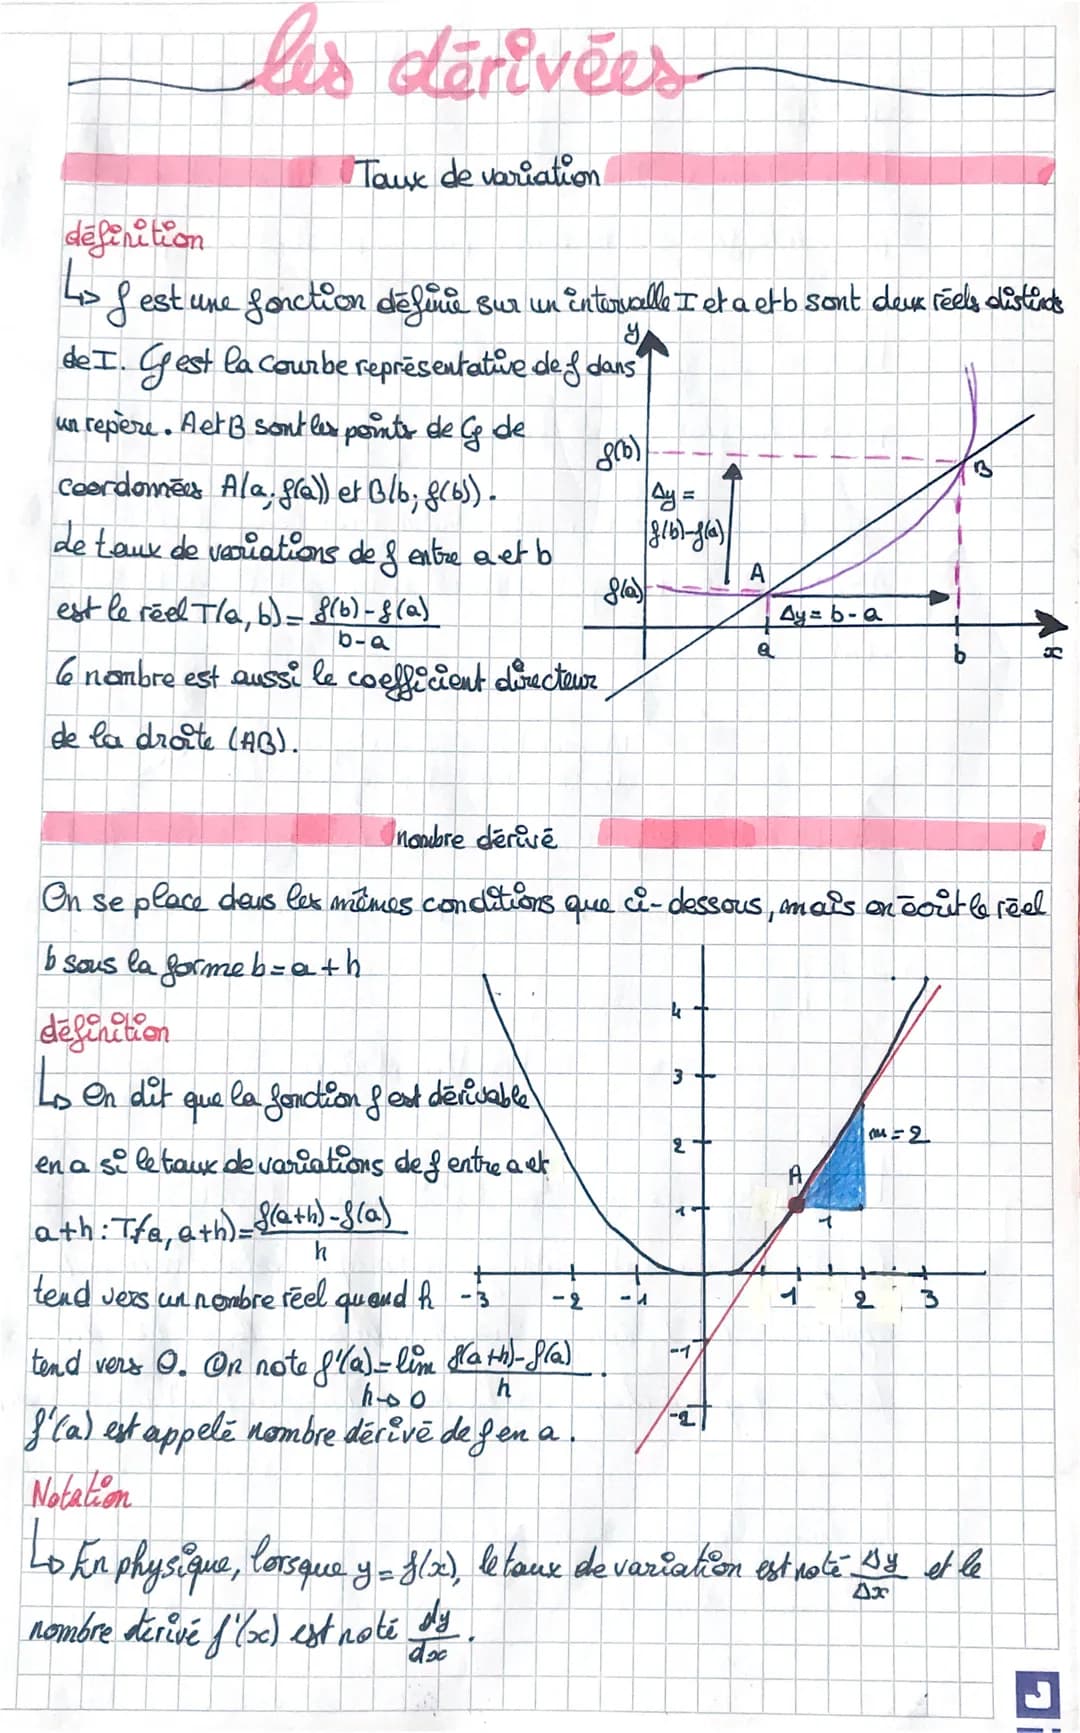 les dérivées
Taux de variation
définition
↳ f est une fonction définie sur un intervalle I et a et b sont deux réels distincts
de I. Cf est la courbe représentative de f dans
un repère. A et B sont les points de Cf de
coordonnées A(a; f(a)) et B(b; f(b)).
de taux de variations de f entre a et b
est le réel T(a, b) = f(b) - f(a) / b - a
Ce nombre est aussi le coefficient directeur
de la droite (AB).
y
f(b)
B
Δy =
f(b)-f(a)
A
f(a)
Δy = b - a
a
b
x
nombre dérivé
On se place dans les mêmes conditions que ci-dessous, mais on écrit le réel
b sous la forme b = a + h
définition
↳ On dit que la fonction f est dérivable
en a si le taux de variations de f entre a et
a+h : T(a, a+h) = f(a+h) - f(a) / h
tend vers un nombre réel quand h
tend vers 0. On note f'(a) = lim h→0 f(a+h) - f(a) / h .
f'(a) est appelé nombre dérivé de f en a.
4
3
2
1
A
m = 2
1
-3 -2 -1 1 2 3
-1
-2
Notation
↳ En physique, lorsque y = f(x), le taux de variation est noté Δy / Δx et le
nombre dérivé f'(x) est noté dy / dx .
J